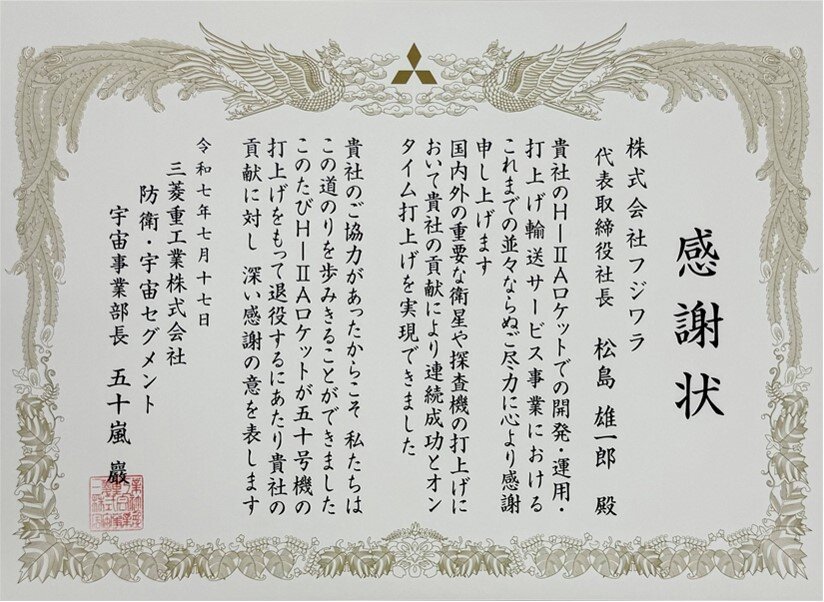 感謝状
株式会社フジワラ
代表取締役社長 松島 雄一郎 殿
貴社のH-ⅡAロケットでの開発・運用・
打上げ輸送サービス事業における
これまでの並々ならぬご尽力に心より感謝
申し上げます
国内外の重要な衛星や探査機の打上げに
おいて貴社の貢献により連続成功とオン
タイム打上げを実現できました
貴社のご協力があったからこそ 私たちは
この道のりを歩みきることができました
このたびH-ⅡAロケットが五十号機の
打上げをもって退役するにあたり貴社の
貢献に対し 深い感謝の意を表します
令和七年七月十七日
三菱重工業株式会社
防衛・宇宙セグメント
宇宙事業部長 五十嵐 巖